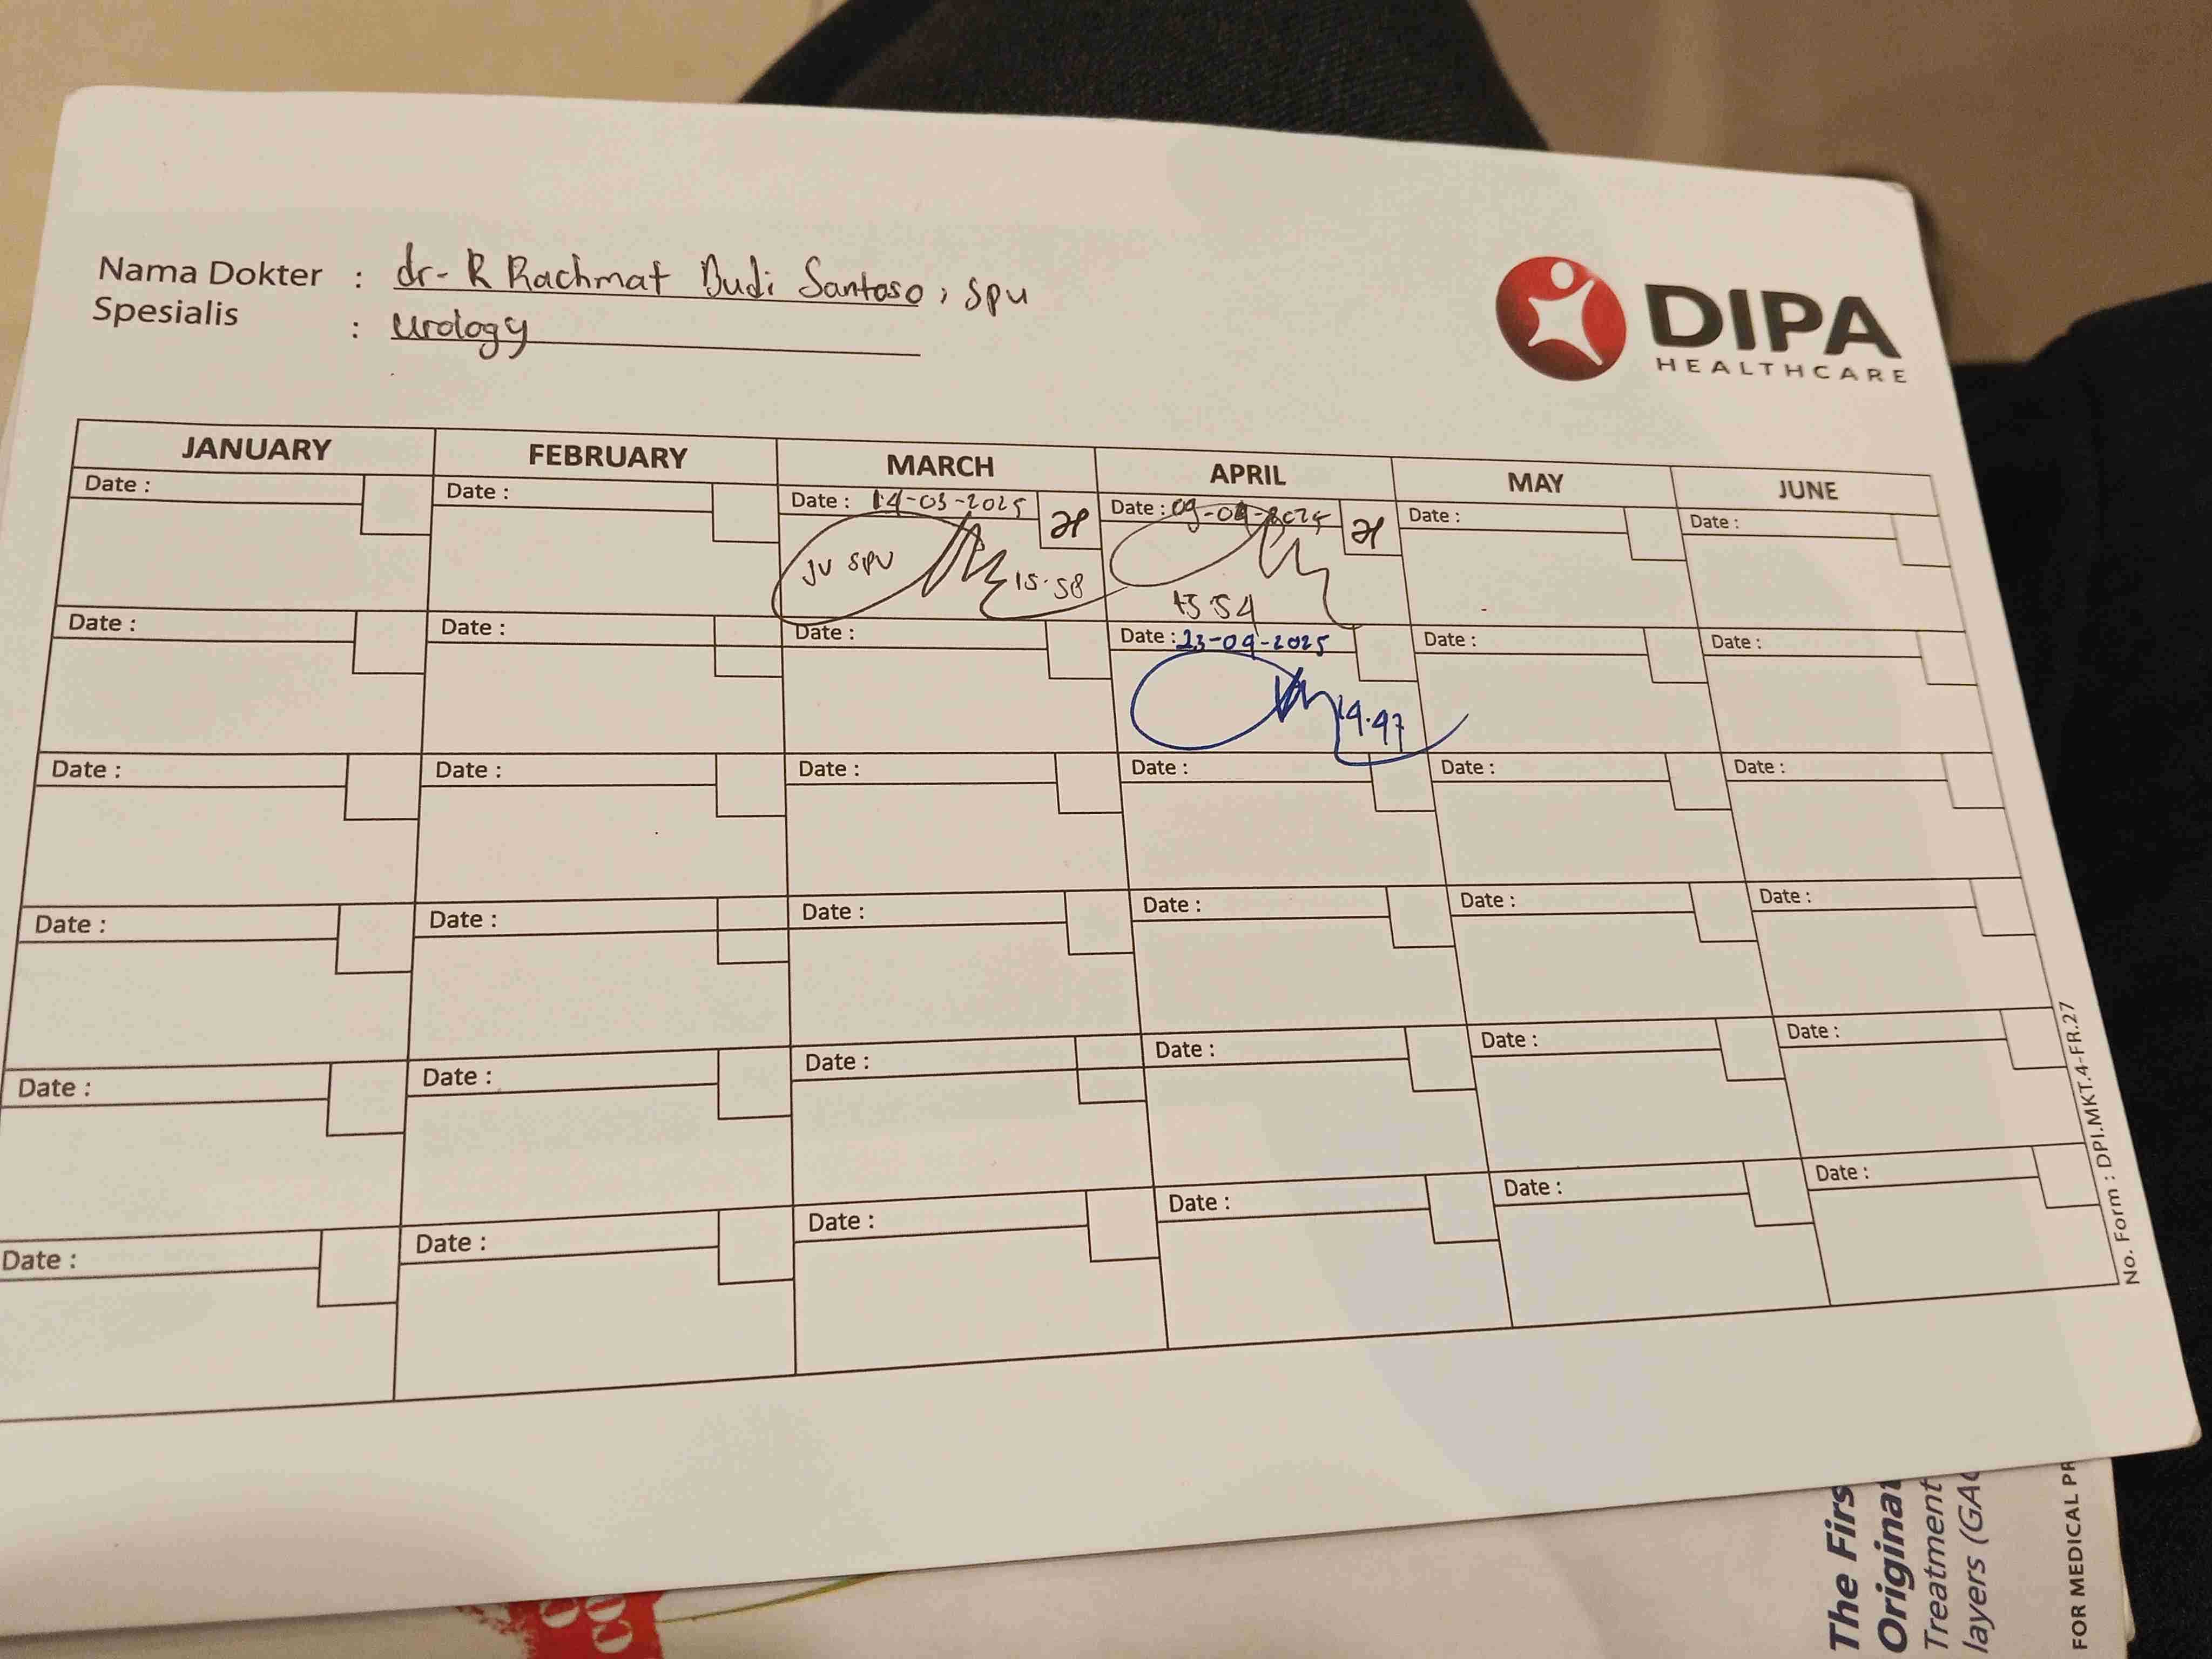 Nama Dokter : dr- R Rachmat Budi Santoso, SpU
Spesialis : Urology
DIPA
HEALTHCARE
JANUARY FEBRUARY MARCH APRIL MAY JUNE
Date : Date : Date : 14-03-2025 Date : 09-04-2025 Date : Date :
JV SPV 15.58
15 54
Date : Date : Date : Date : 23-04-2025 Date : Date :
14.47
Date : Date : Date : Date : Date : Date :
Date : Date : Date : Date : Date : Date :
Date : Date : Date : Date : Date : Date :
Date : Date : Date : Date : Date : Date :
No. Form : DPI.MKT.4-FR.27
The Firs
Originat
Treatment
layers (GAG
FOR MEDICAL PR